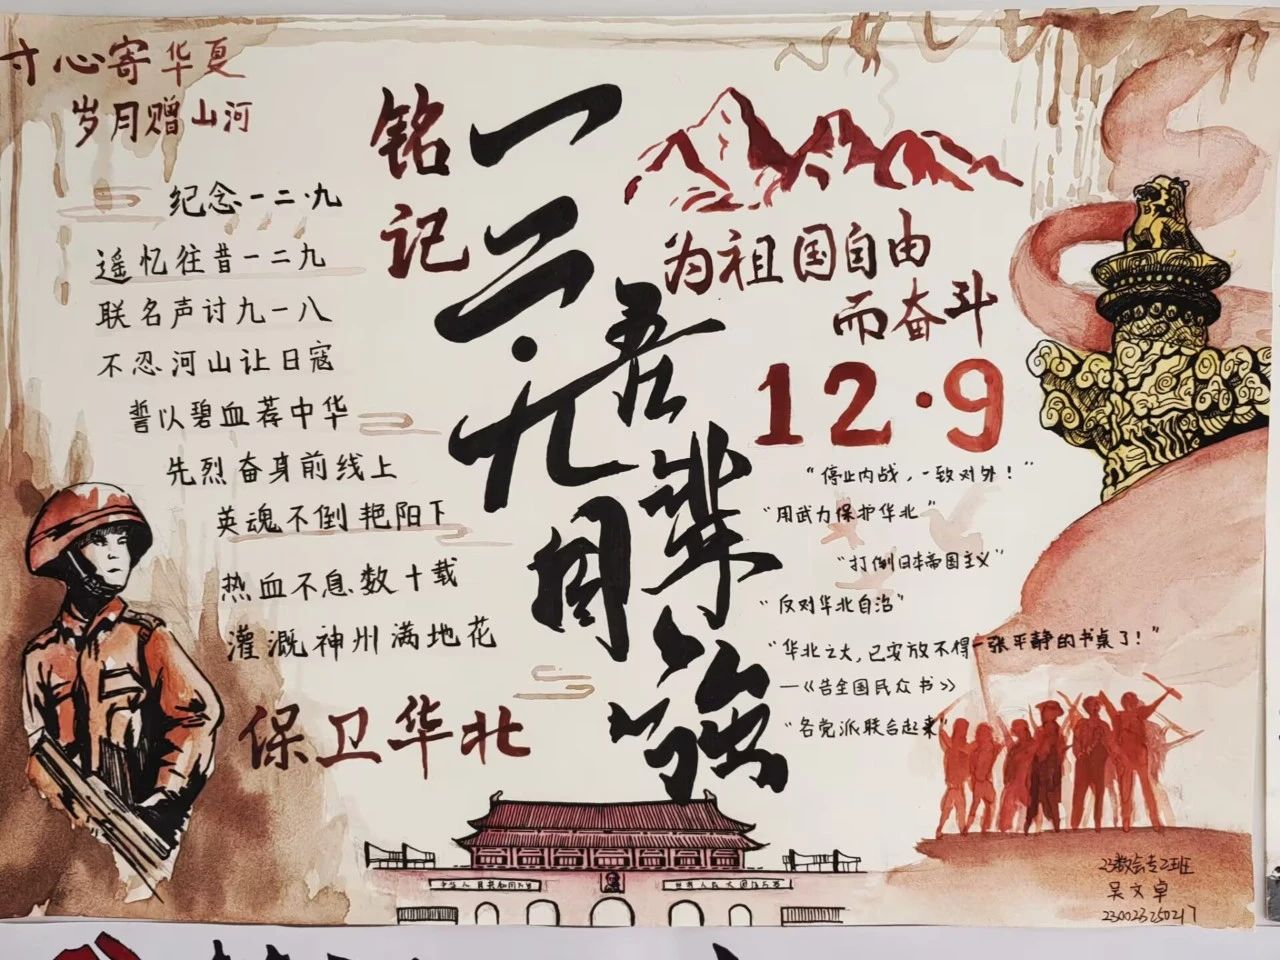 寸心寄华夏
岁月赠山河
纪念一二·九
遥忆往昔一二九
联名声讨九一八
不忍河山让日寇
誓以碧血荐中华
先烈奋身前线上
英魂不倒艳阳下
热血不息数十载
灌溉神州满地花
保卫华北
铭记
一二·九
吾辈
自强
为祖国自由
而奋斗
12·9
“停止内战，一致对外！”
“用武力保护华北”
“打倒日本帝国主义”
“反对华北自治”
“华北之大，已安放不得一张平静的书桌了！”
—《告全国民众书》
“各党派联合起来”
吴文卓